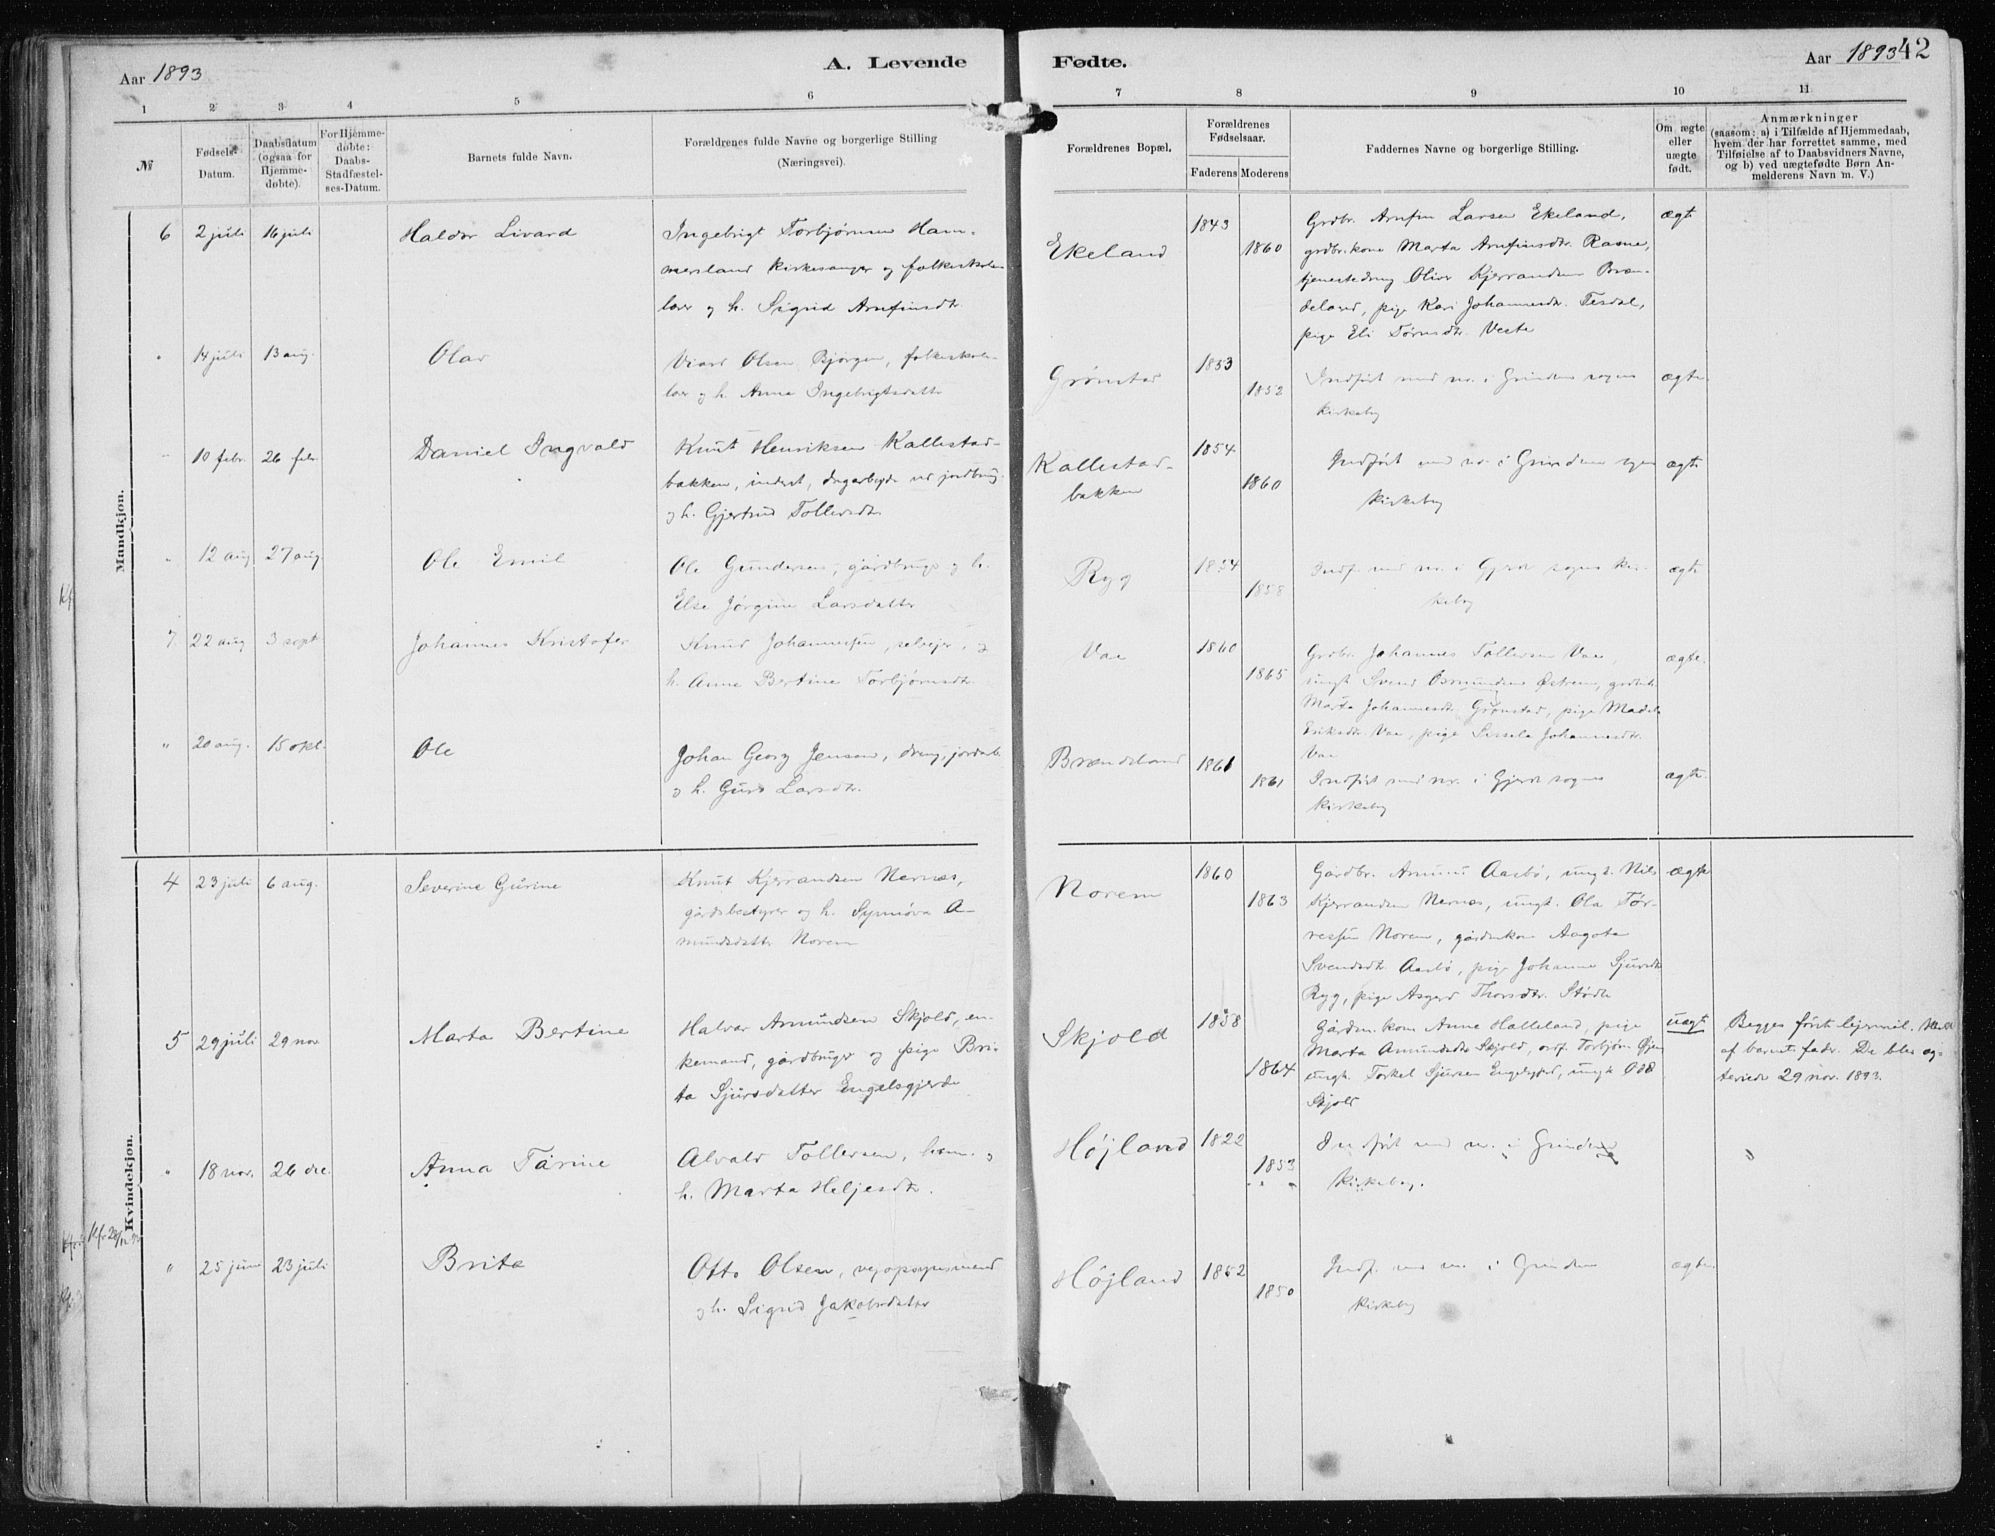 Aar 1893
A. Levende
Fødte.
Aar 1893
42
1 2 3 4 5 6 7 8 9 10 11
№
Fødsels-
Datum.
Daabsdatum
(ogsaa for
Hjemme-
døbte).
For Hjemme-
døbte:
Daabs-
Stadfæstel-
ses-Datum.
Barnets fulde Navn.
Forældrenes fulde Navne og borgerlige Stilling
(Næringsvei).
Forældrenes Bopæl.
Forældrenes
Fødselsaar.
Faderens Moderens
Faddernes Navne og borgerlige Stilling.
Om ægte
eller
uægte
født.
Anmærkninger
(saasom: a) i Tilfælde af Hjemmedaab,
hvem der har forrettet samme, med
Tilføielse af to Daabsvidners Navne,
og b) ved uægtefødte Børn An-
melderens Navn m. V.)
Mandkjøn.
6 2 juli 16 juli Haldor Livard
Ingebrigt Torbjørnsen Ham-
mersland kirkesanger og folkeskole-
lær og h. Sigrid Arnfinsdtr.
Ekeland
1843
1860
Grdbr. Arnfin Larsen Ekeland,
grdbr.kone Marta Arnfinsdtr.
tjenestedreng Oliver Kjerrandsen Bræn-
deland, pige Kari Johannesdtr. Tesdal,
pige Eli
ægte
" 14 juli 13 aug. Olav
Olsen Bjorgen, folkeskole-
lær og h. Anna Ingebrigtsdatter
Grønstad
1853
1852
Indført med nr. i Grinden sogns
kirkebog
ægte
" 10 febr. 26 febr. Daniel Ingvald
Knut Henriksen Kallestad-
bakken, inderst, dagarbejde ved jordbrug
og h. Gjertrud Tollevsdtr.
Kallestad-
bakken
1854
1860
Indført med nr. i Grinden sogns
kirkebog
ægte
" 12 aug. 27 aug. Ole Emil
Ole Gundersen, gårdbruger og h.
Else Jørgine Larsdatter
Ryg
1854
1858
Indf. med nr. i Gjerde sogns kir-
kebog
ægte
7. 22 aug 3 sept Johannes Kristofer
Knud Johannessen, selvejer, og
h. Anne Bertine Torbjørnsdtr.
Vae
1860
1865
Grdbr. Johannes Tollevsen Vae,
ungk. Svend Osmundsen Østrem,
Marta Johannesdtr. Grønstad, pige
Eriksdtr. Vae, pige Sissela Johannesdtr.
Vae
ægte.
" 20 aug. 15 okt. Ole
Johan Georg Jensen, dreng, jordarb.
og h. Guro Larsdtr.
Brændeland
1861
1861
Indført med nr. i Gjerde sogns
kirkebog
ægte.
Kvindekjøn.
4 23 juli 6 aug. Severine Gurine
Knut Kjerrandsen Nernæs,
gårdsbestyrer og h. Synnøva A-
mundsdatter Norem
Norem
1860
1863
Gårdbr. Amund Aasbø, ungk. Nils
Kjerrandsen Nernæs, ungk. Ola Tør-
ressen Norem, gårdmkone Aagota
Svendsdtr. Aasbø, pige Johanna Sjursdtr
Ryg, pige Asgerd Thorsdtr. Stødle
ægte
5 29 juli 29 nov Marta Bertine
Halvar Amundsen Skjold, en-
kemand, gårdbruger og pige Bri-
ta Sjursdatter Engelsgjerde
Skjold
1838
1864
Gårdm. kone Anne Halleland, pige
Marta Amundsdtr Skjold, Torbjørn
ungk. Torkel Sjursen Engelsgjerd, ungk Odd
Skjold
uægt
Begges første lejermål.
af barnets fader. De blev æg-
teviede 29 nov. 1893.
" 18 nov. 26 dec Anna Tarine
Alvald Tollevsen, og
h. Marta Heljesdtr.
Højland
1822
1853
Indført med nr. i Grinden
kirkebog.
" 25 juni 23 juli Brite
Otto Olsen, vejopsynsmand
og h. Sigrid Jakobsdatter
Højland
1852
1850
Indf. med nr. i Grinden
kirkebog
ægte.